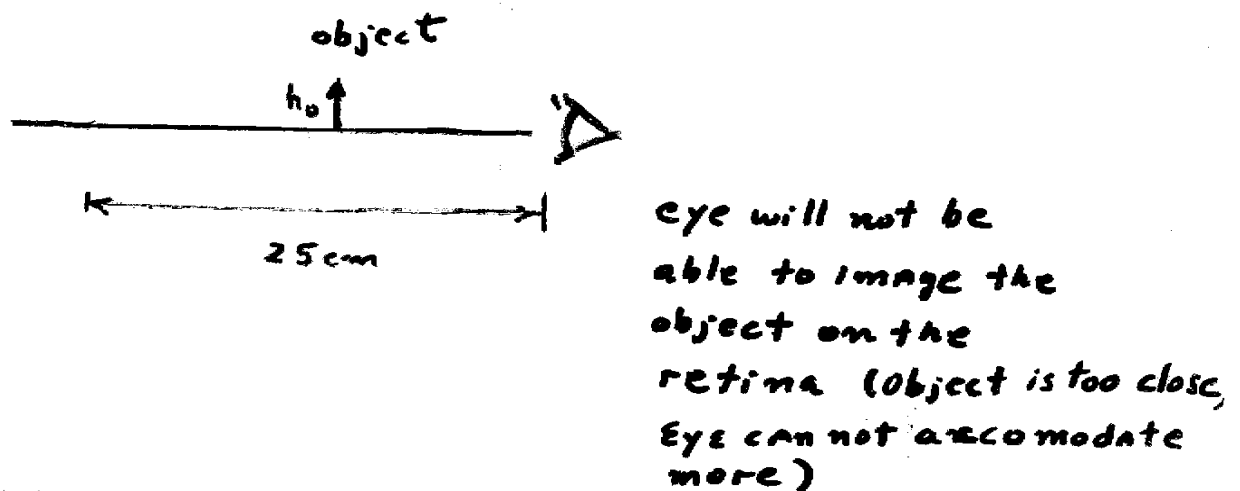 object
h₀
25cm
eye will not be
able to image the
object on the
retina (Object is too close,
Eye can not accomodate
more)